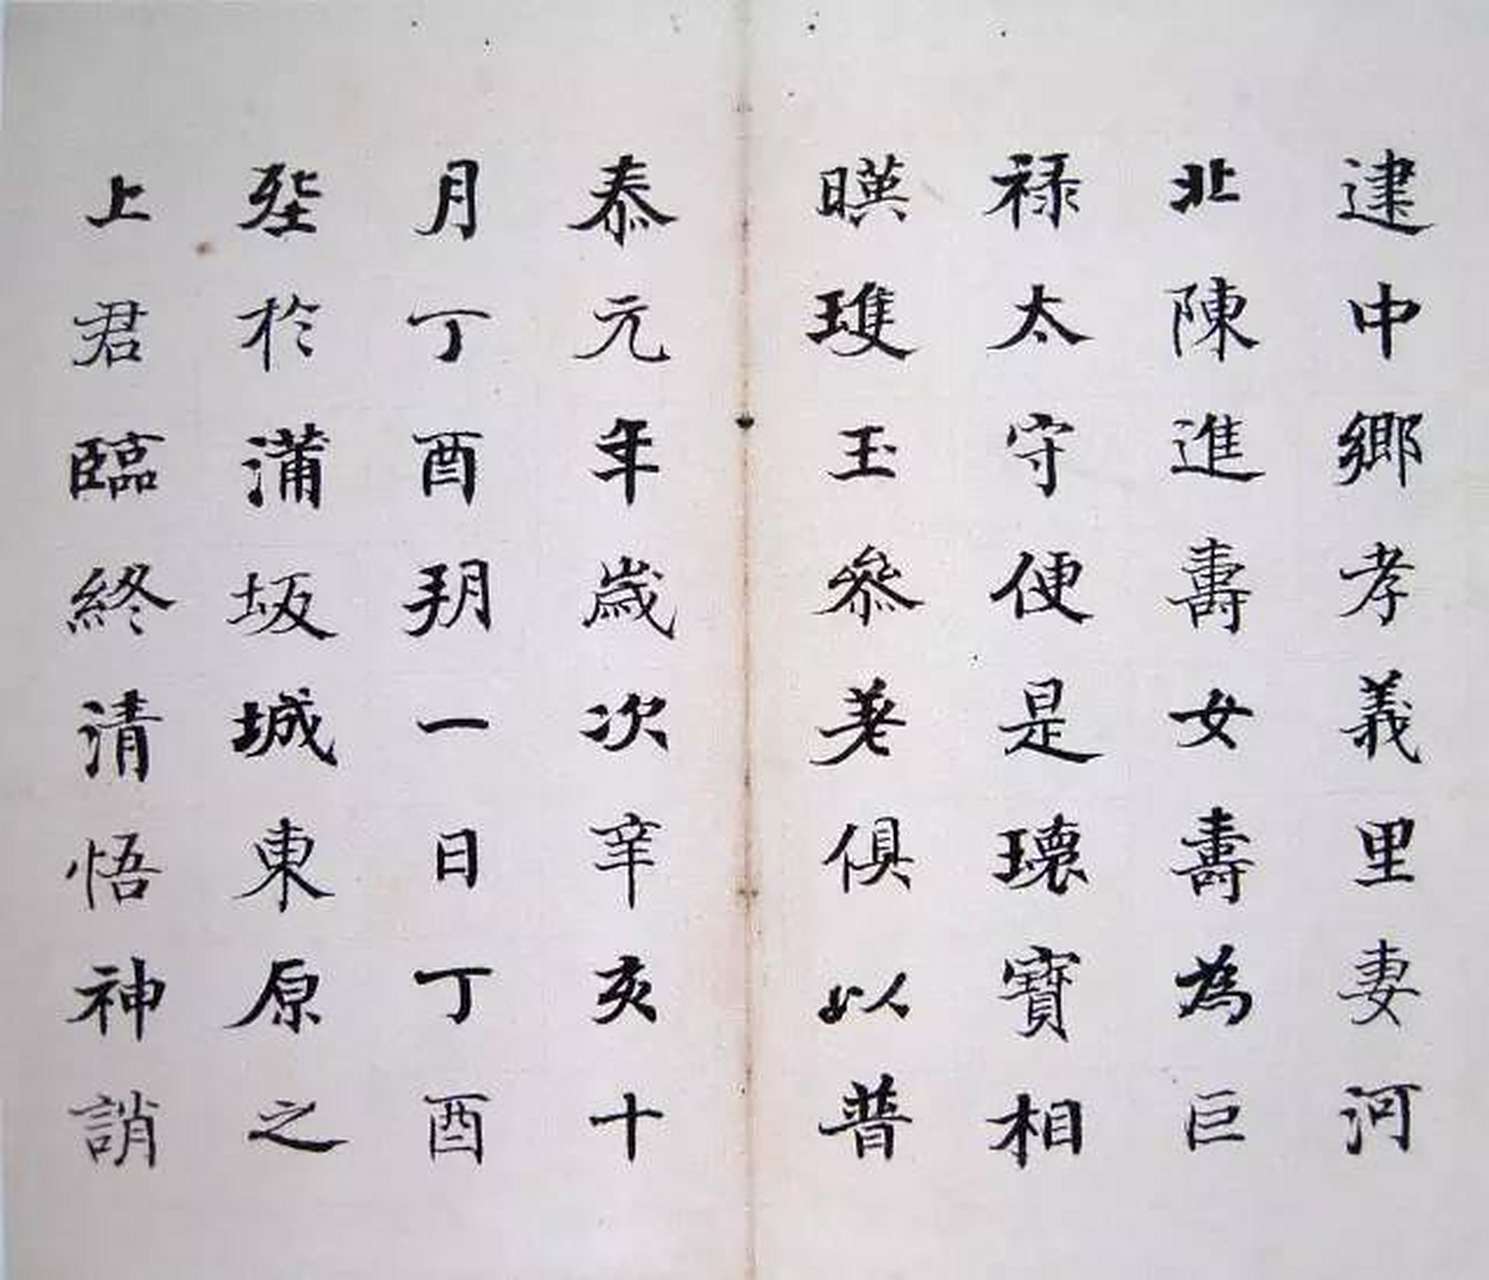 建中鄉孝義里妻河
北陳進壽女壽為巨
祿太守便是瓌寶相
暎瓊玉參差俱以普
泰元年歲次辛亥十
月丁酉朔一日丁酉
葬於蒲坂城東原之
上君臨終清悟神誚